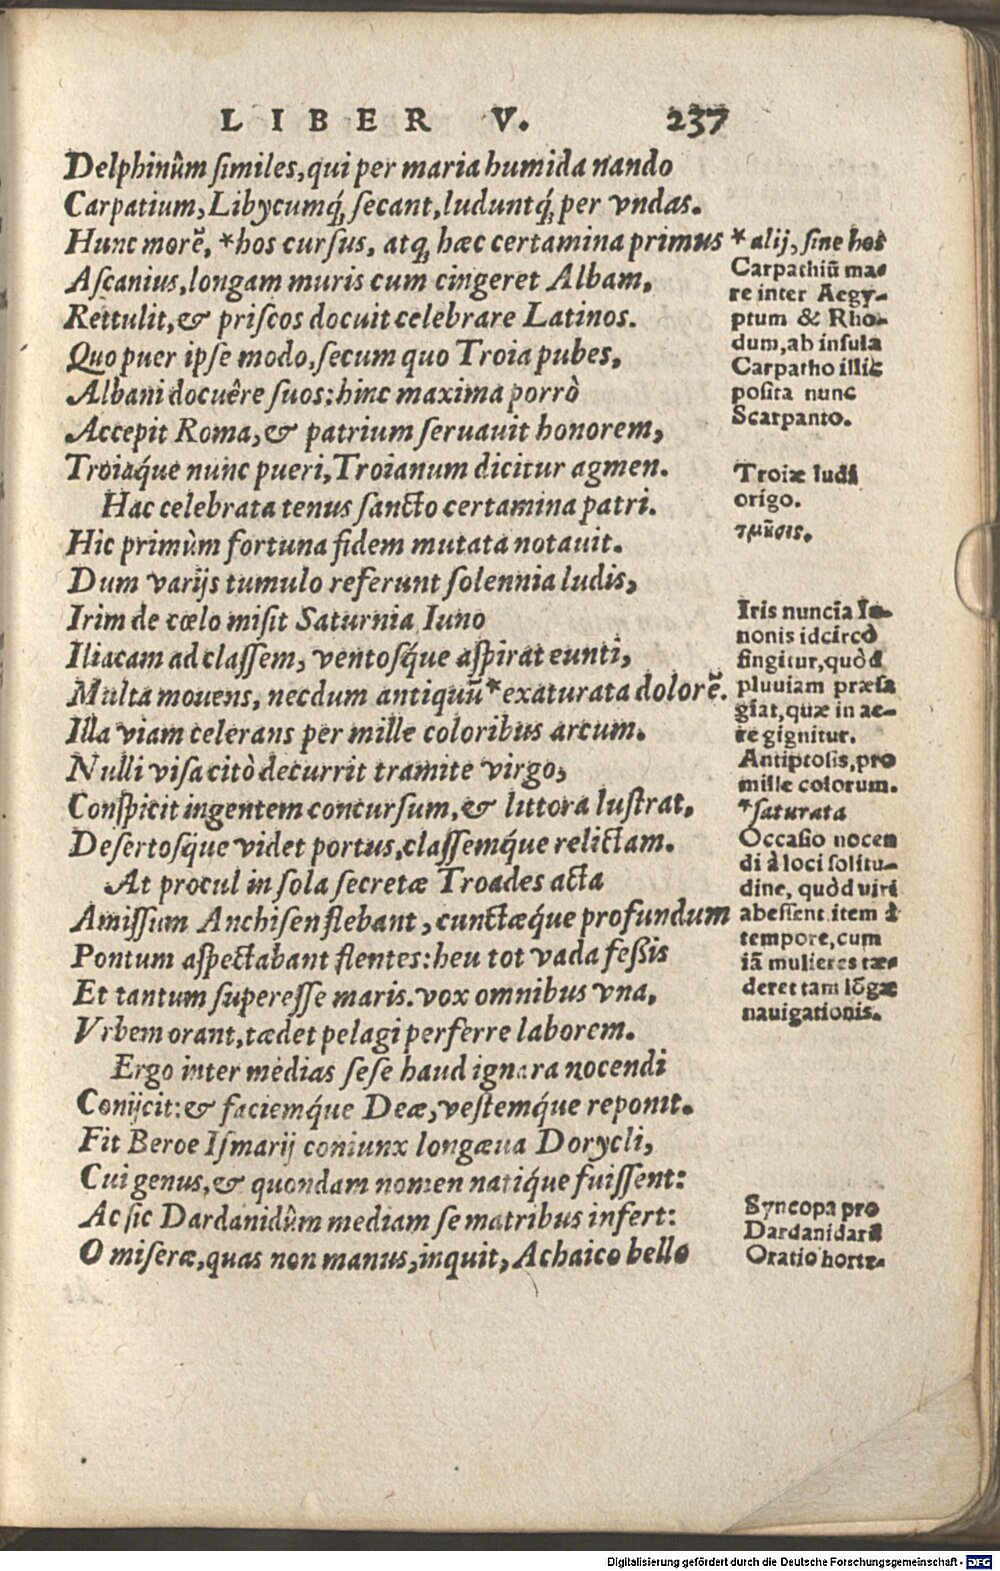 LIBER V. 237
Delphinûm ſimiles, qui per maria humida nando
Carpatium, Libycumq́; ſecant, luduntq́; per vndas.
Hunc morē, *hos curſus, atq; hæc certamina primus
Aſcanius, longam muris cum cingeret Albam,
Rettulit, & priſcos docuit celebrare Latinos.
Quo puer ipſe modo, ſecum quo Troia pubes,
Albani docuêre ſuos: hinc maxima porrò
Accepit Roma, & patrium ſeruauit honorem,
Troiaq́ue nunc pueri, Troianum dicitur agmen.
Hac celebrata tenus ſancto certamina patri.
Hic primùm fortuna fidem mutata notauit.
Dum varijs tumulo referunt ſolennia ludis,
Irim de cœlo miſit Saturnia Iuno
Iliacam ad claſſem, ventosq́ue aſpirat eunti,
Multa mouens, necdum antiquū *exaturata dolorē.
Illa viam celerans per mille coloribus arcum.
Nulli viſa citò decurrit tramite virgo,
Conſpicit ingentem concurſum, & littora luſtrat,
Deſertosq́ue videt portus, claſſemq́ue relictam.
At procul in ſola ſecretæ Troades acta
Amiſſum Anchiſen flebant, cunctæq́ue profundum
Pontum aſpectabant flentes: heu tot vada feßis
Et tantum ſupereſſe maris. vox omnibus vna,
Vrbem orant, tædet pelagi perferre laborem.
Ergo inter medias ſeſe haud ignara nocendi
Conijcit: & faciemq́ue Deæ, veſtemq́ue reponit.
Fit Beroe Iſmarij coniunx longæua Dorycli,
Cui genus, & quondam nomen natiq́ue fuiſſent:
Ac ſic Dardanidûm mediam ſe matribus infert:
O miſeræ, quas non manus, inquit, Achaico bello
* alij, ſine hos
Carpathiū ma-
re inter Aegy-
ptum & Rho-
dum, ab inſula
Carpatho illic
poſita nunc
Scarpanto.
Troiæ ludi
origo.
τμῆσις.
Iris nuncia Iu-
nonis idcircò
fingitur, quòd
pluuiam præſa
giat, quæ in ae-
re gignitur.
Antiptoſis, pro
mille colorum.
*ſaturata
Occaſio nocen
di à loci ſolitu-
dine, quòd viri
abeſſent. item à
tempore, cum
iā mulieres tæ-
deret tam lōgæ
nauigationis.
Syncopa pro
Dardanidarū
Oratio horta-
Digitalisierung gefördert durch die Deutsche Forschungsgemeinschaft - DFG